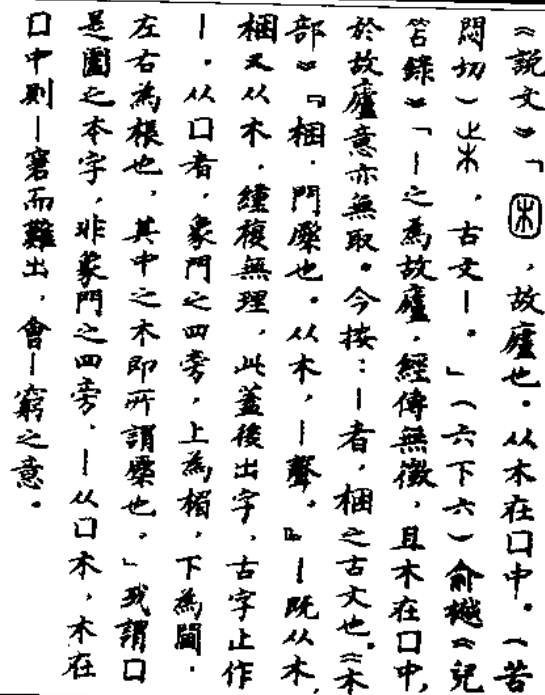 《說文》「困，故廬也。从木在囗中。（苦
悶切）𣏔，古文｜。」（六下六）俞樾《兒
笘錄》「｜之為故廬，經傳無徵，且木在囗中，
於故廬意亦無取。今按：｜者，梱之古文也。《木
部》『梱，門橜也。从木，｜聲。』｜既从木，
梱又从木，緟複無理，此蓋後出字，古字止作
｜。从囗者，象門之四旁，上為楣，下為閫，
左右為棖也，其中之木即所謂橜也。」或謂囗
是圍之本字，非象門之四旁，｜从囗木，木在
囗中則｜窘而難出，會｜窮之意。